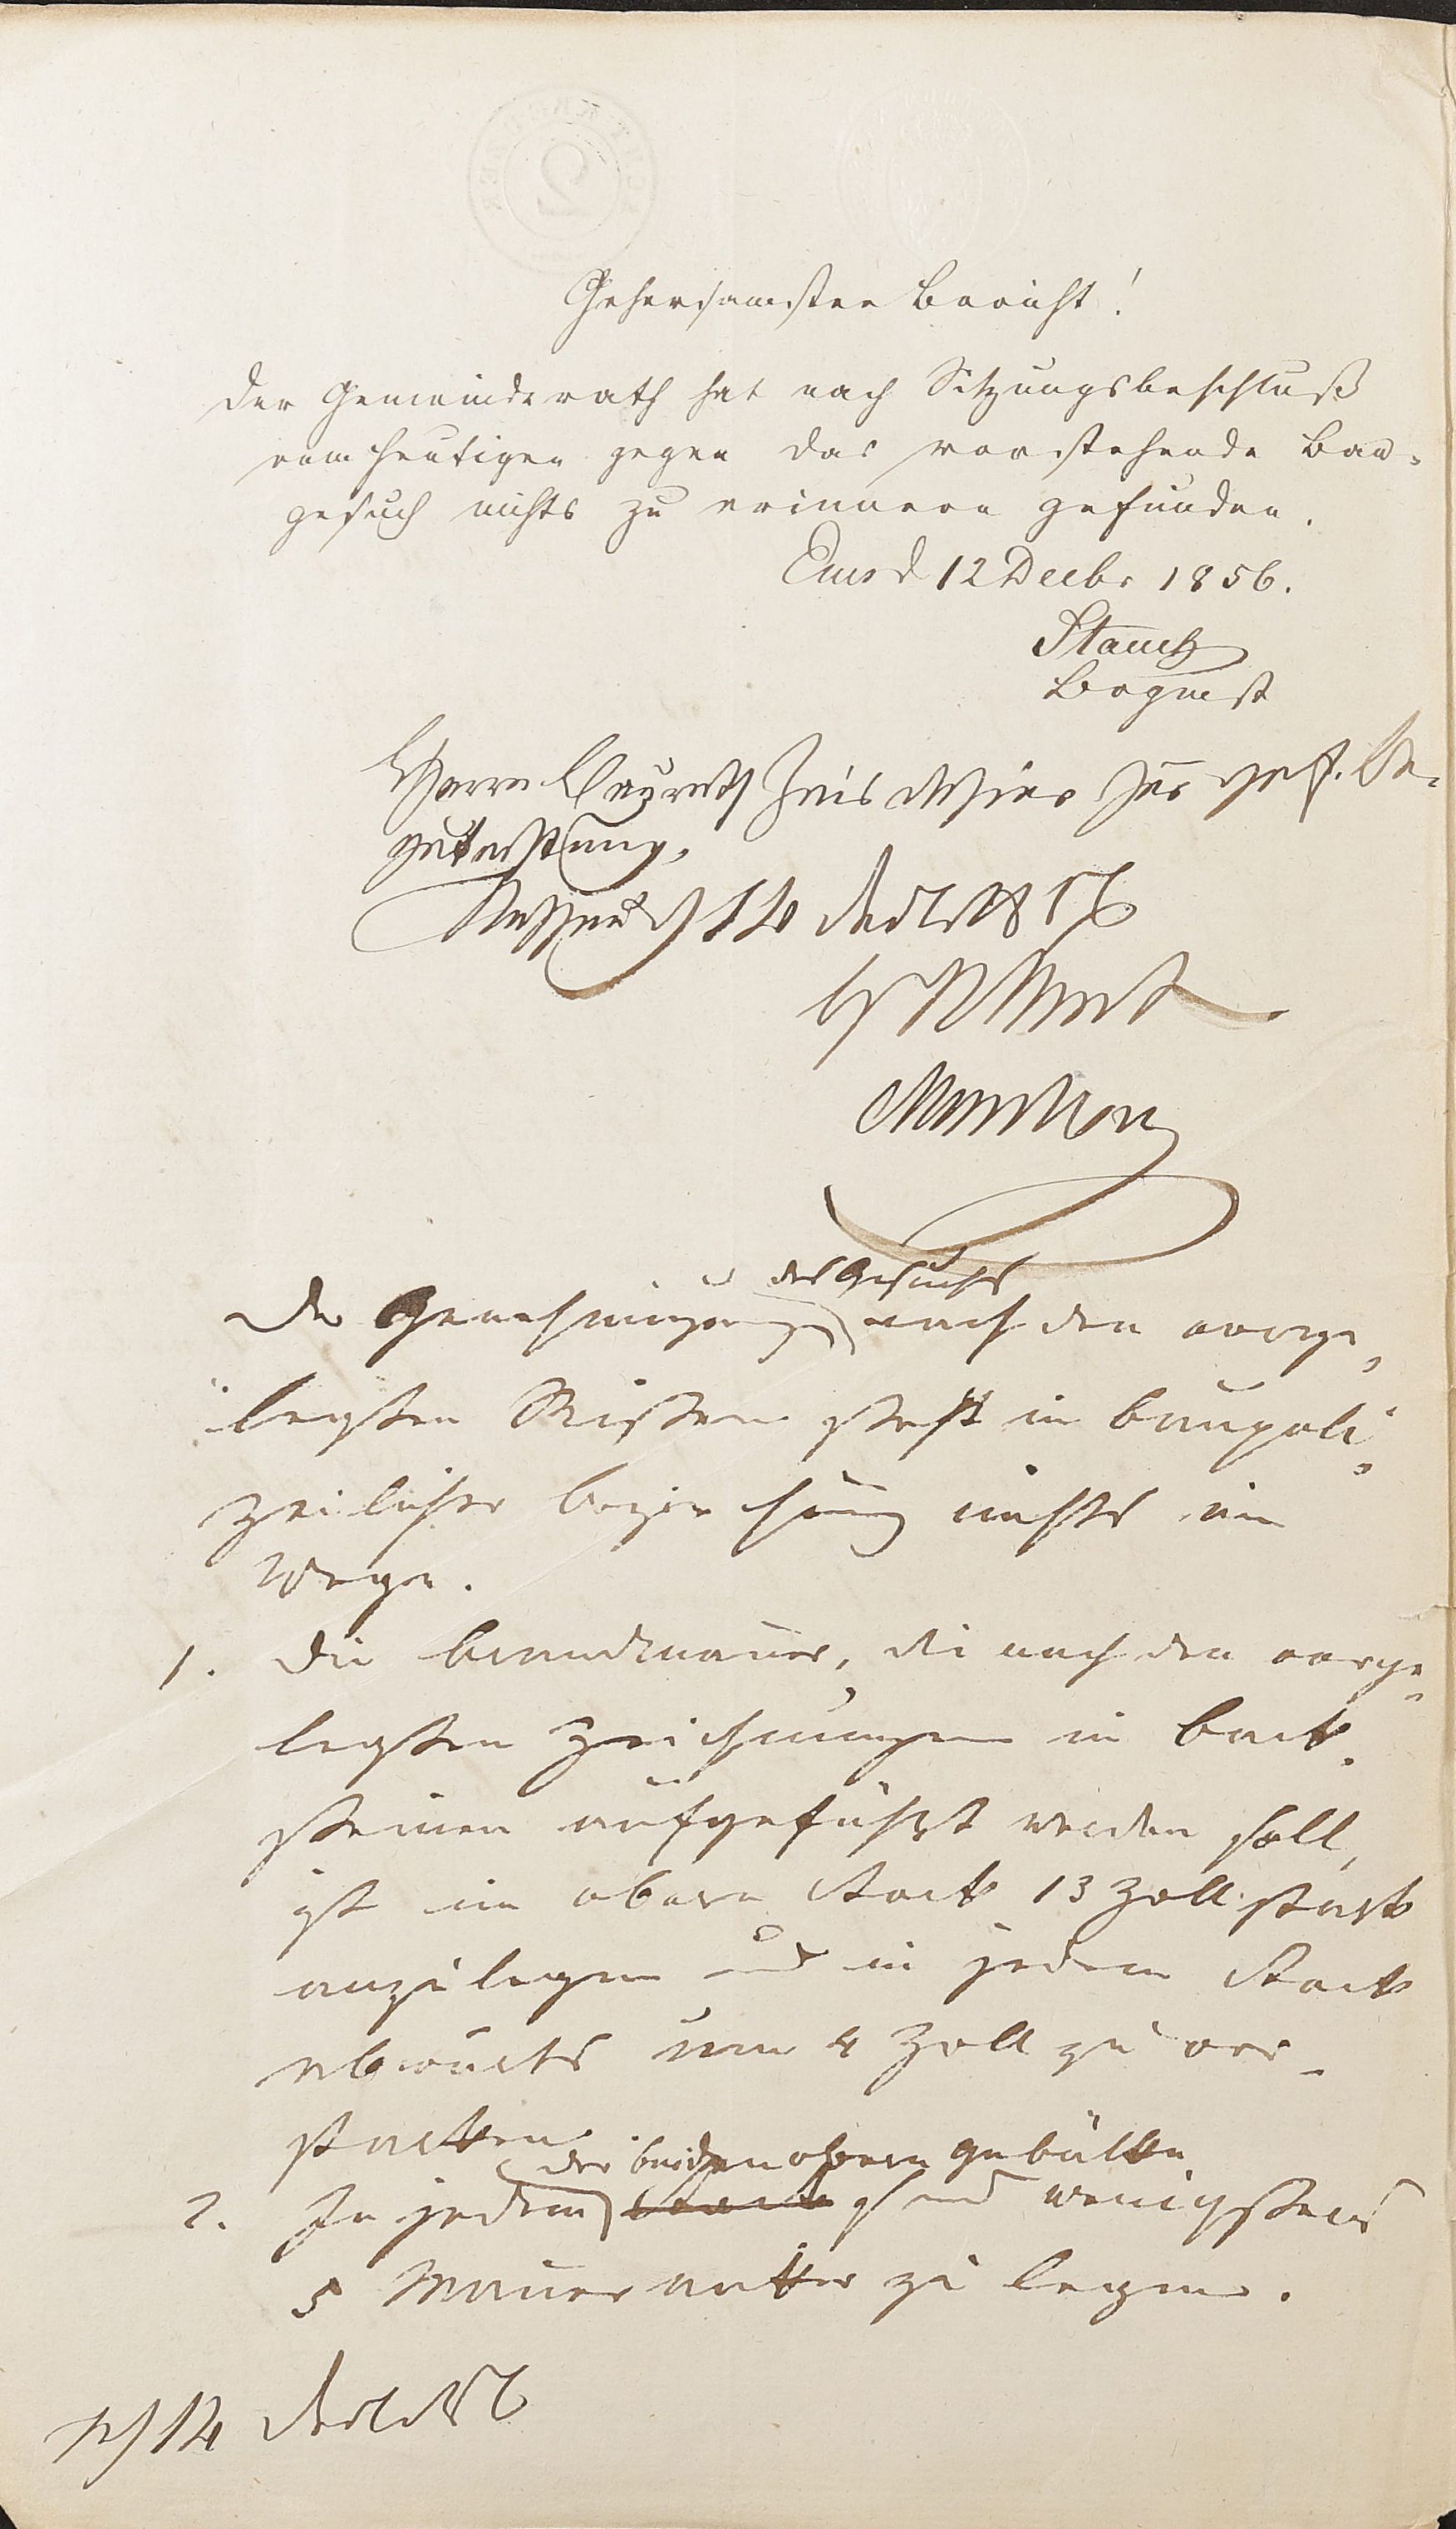 Gehorsamster Bericht!
Der Gemeinderath hat nach Sitzungsbeschluß
vom heutigen gegen das vorstehende Bau-
gesuch nichts zu erinnern gefunden.
Ems d 12 Decbr 1856.
Stauch
Brgmst
Herrn zur gef. Be-
gutachtung.
Nassau d 14 Decbr 1856
Der Genehmigung des Gesuchs nach den vorge-
legten Rissen steht in baupoli-
zeilicher Beziehung nichts im
Wege.
1. Die Brandmauer, die nach den vorge-
legten Zeichnungen in Back-
steinen aufgeführt werden soll,
ist im obern Stock 13 Zoll stark
anzulegen und in jedem Stock
abwärts um 4 Zoll zu ver-
stärken.
2. In jedem der beiden obern Gebälke sind wenigstens
5 Maueranker zu legen.
14 Decbr 56